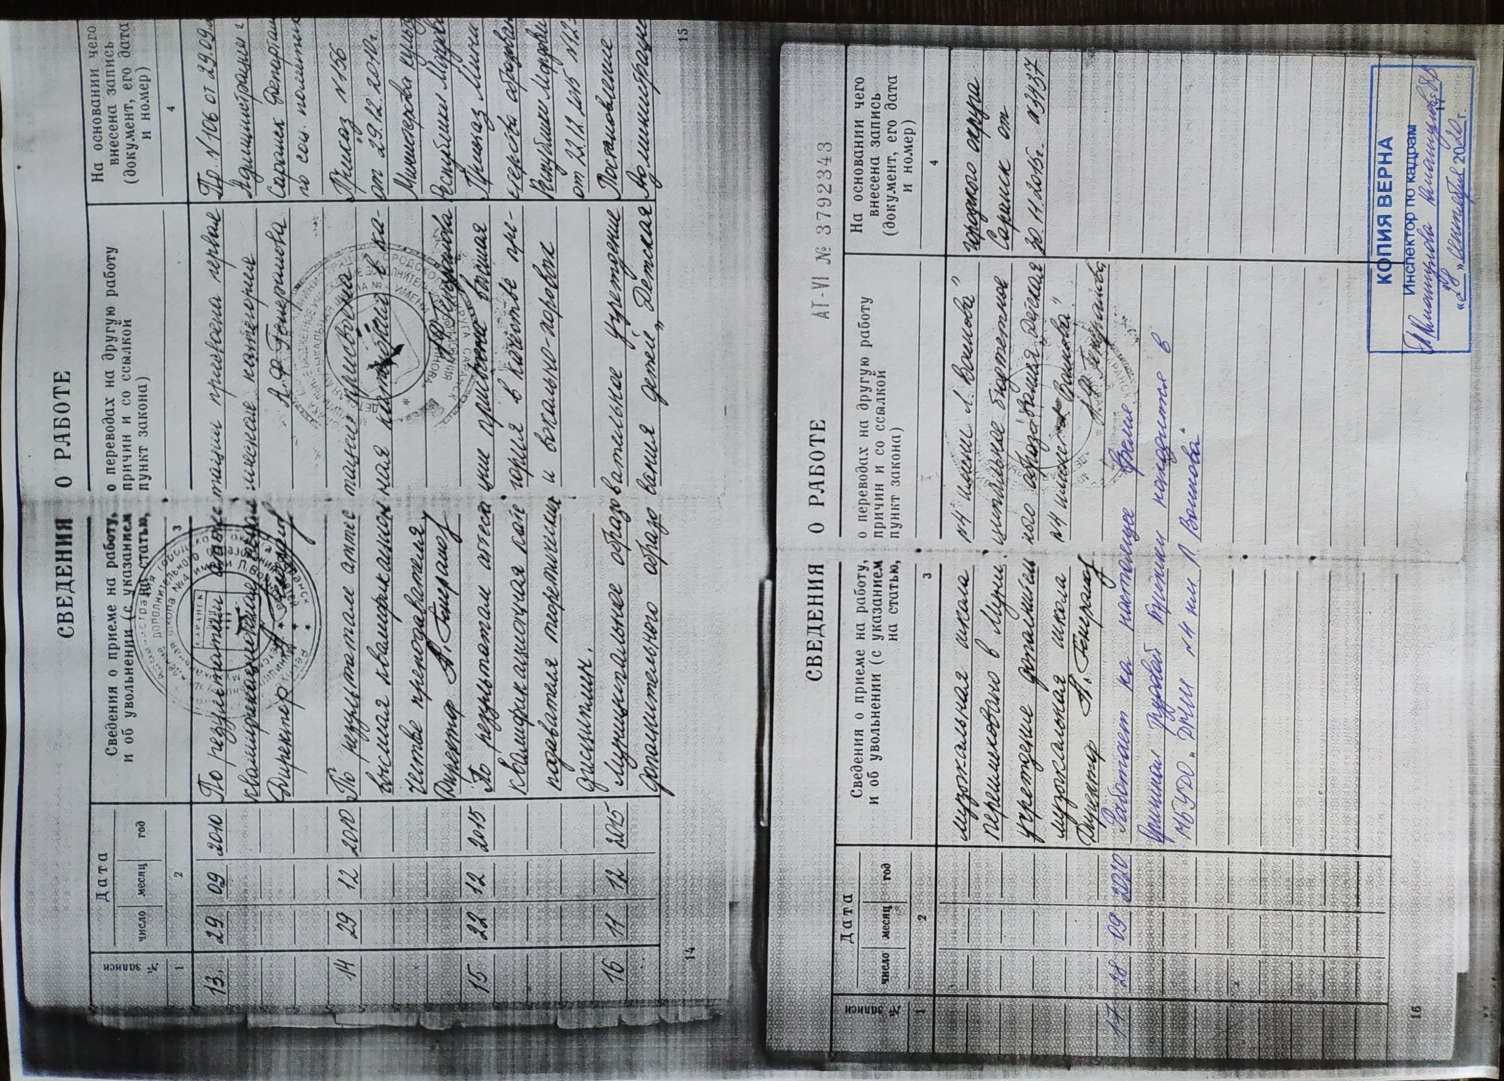 СВЕДЕНИЯ О РАБОТЕ
№ записи
Дата
число месяц год
Сведения о приеме на работу, о переводах на другую работу
и об увольнении (с указанием причин и со ссылкой
на статью, пункт закона)
На основании чего
внесена запись
(документ, его дата
и номер)
1 2 3 4
13. 29 09 2010 По результатам аттестации присвоена первая
квалификационная категория
Директор А.Ф. Генералова
Пр №106 от 29.09
Администрация г
Саранск Департам
по соц. политик
14 29 12 2010 По результатам аттестации присвоена
высшая квалификационная категория в ка-
честве преподавателя
Директор А.Ф. Генералова
Приказ №156
от 29.12.2010г.
Министерства культ
Республики Мордов
15 22 12 2015 По результатам аттестации присвоена высшая
квалификационная категория в качестве пре-
подавателя теоретических и вокально-хоровых
дисциплин.
Приказ Мини
стерства образован
Республики Мордови
от 22.12.2015
16 11 12 2015 Муниципальное образовательное учреждение
дополнительного образования детей „Детская
Постановление
Администрации
14
15
АТ-VI № 3792343
СВЕДЕНИЯ О РАБОТЕ
№ записи
Дата
число месяц год
Сведения о приеме на работу, о переводах на другую работу
и об увольнении (с указанием причин и со ссылкой
на статью, пункт закона)
На основании чего
внесена запись
(документ, его дата
и номер)
1 2 3 4
музыкальная школа №4 имени Л. Воинова"
переименовано в Муниципальное бюджетное
учреждение дополнительного образования „Детская
музыкальная школа №4 имени Л. Воинова".
Директор А.Ф. Генералова
городского округа
Саранск от
30.11.2015г. №3437
17 28 09 2020 Работает по настоящее время
Оригинал трудовой книжки находится в
МБУДО „ДМШ №4 им Л Воинова"
КОПИЯ ВЕРНА
Инспектор по кадрам
„28" сентября 2020 г.
16